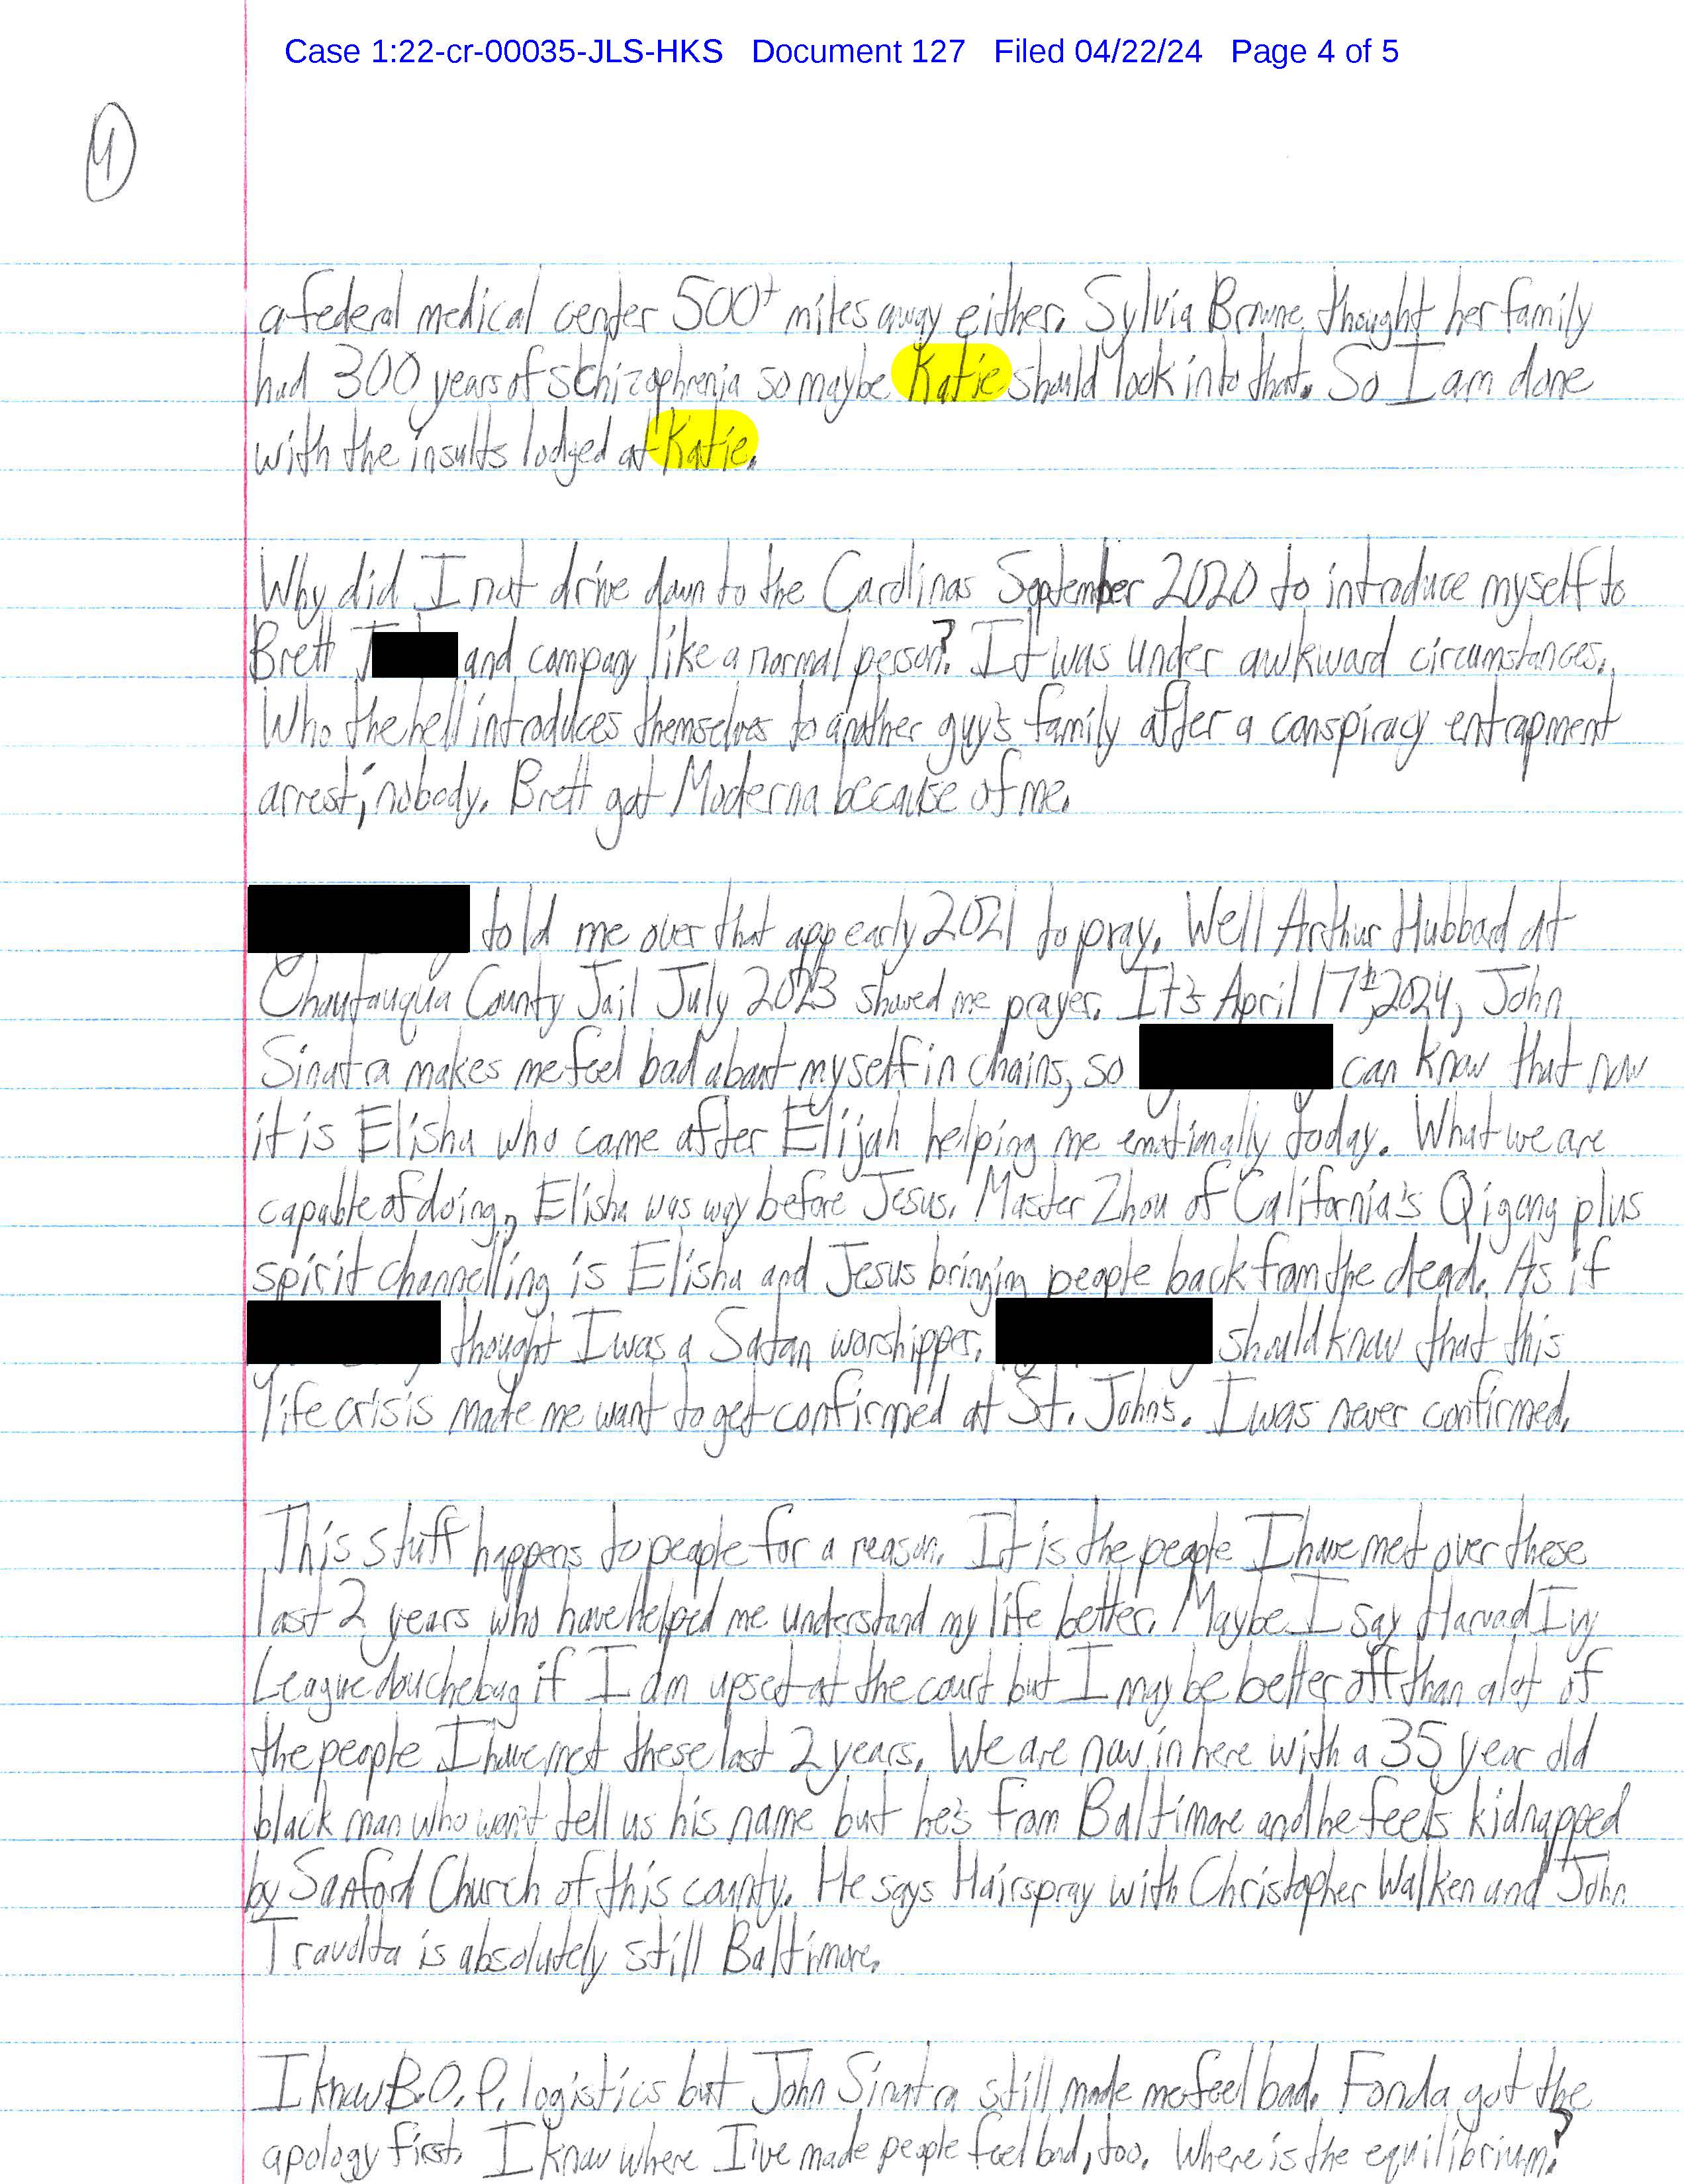 Case 1:22-cr-00035-JLS-HKS Document 127 Filed 04/22/24 Page 4 of 5
4
a federal medical center 500+ miles away either. Sylvia Browne thought her family
had 300 years of schizophrenia so maybe Katie should look into that. So I am done
with the insults lodged at Katie.
Why did I not drive down to the Carolinas September 2020 to introduce myself to
Brett J and company like a normal person? It was under awkward circumstances.
Who the hell introduces themselves to another guy's family after a conspiracy entrapment
arrest; nobody. Brett got Moderna because of me.
told me over that app early 2021 to pray. Well Arthur Hubbard at
Chautauqua County Jail July 2023 showed me prayer. It's April 17th, 2024, John
Sinatra makes me feel bad about myself in chains, so can know that now
it is Elisha who came after Elijah helping me emotionally today. What we are
capable of doing, Elisha was way before Jesus. Master Zhou of California's Qigong plus
spirit channelling is Elisha and Jesus bringing people back from the dead. As if
thought I was a Satan worshipper. should know that this
life crisis made me want to get confirmed at St. Johns. I was never confirmed.
This stuff happens to people for a reason. It is the people I have met over these
last 2 years who have helped me understand my life better. Maybe I say Harvad Ivy
League douchebag if I am upset at the court but I may be better off than alot of
the people I have met these last 2 years. We are now in here with a 35 year old
black man who won't tell us his name but he's from Baltimore and he feels kidnapped
by Sanford Church of this county. He says Hairspray with Christopher Walken and John
Travolta is absolutely still Baltimore.
I know B.O.P. logistics but John Sinatra still made me feel bad. Fonda got the
apology first. I know where I've made people feel bad, too. Where is the equilibrium?